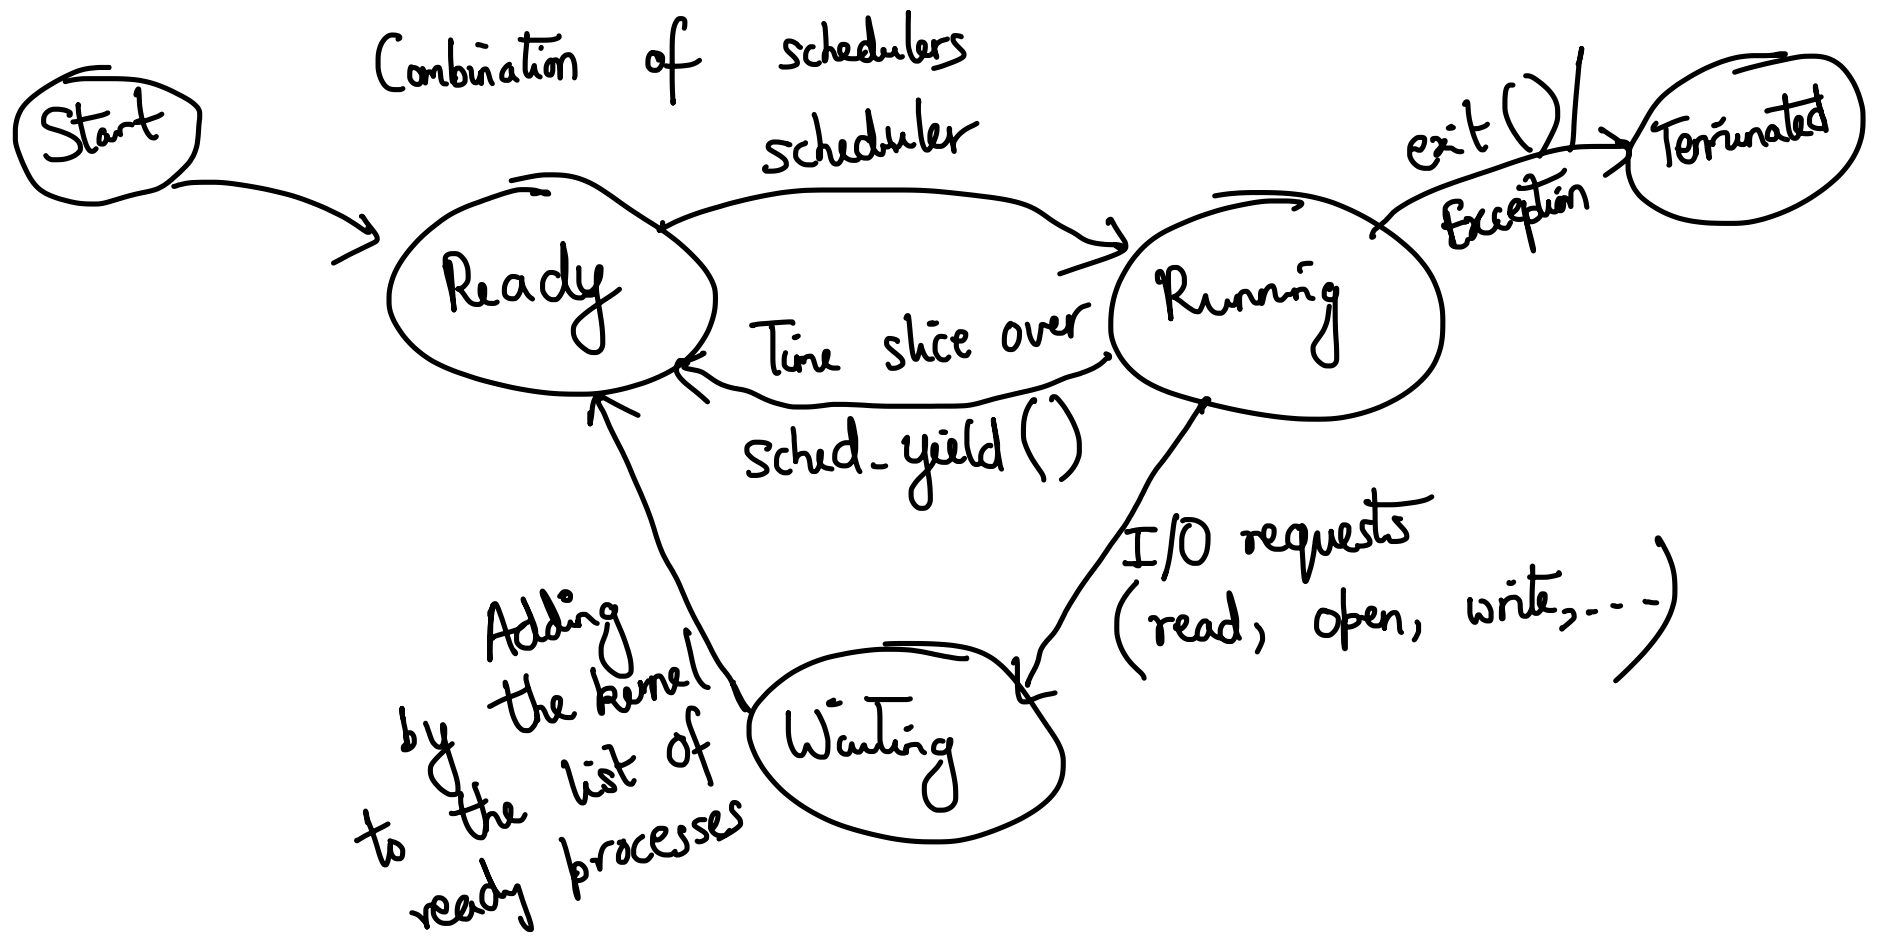 Combination of schedulers
scheduler
Start
exit() /
Exception
Terminated
Ready
Running
Time slice over
sched_yield()
I/O requests
(read, open, write, ....)
Adding
by the kernel
to the list of
ready processes
Waiting